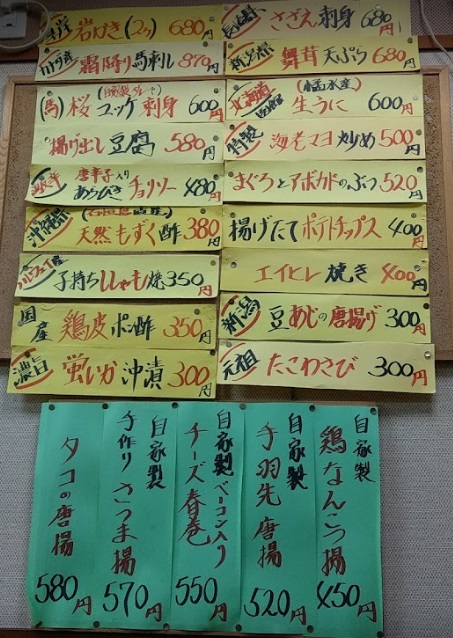 岩がき(2ヶ) 680円
霜降り馬刺し 870円
(馬)桜ユッケ刺身 600円
揚げ出し豆腐 580円
唐辛子入り
あらびきチョリソー 480円
沖縄県 天然もずく酢 380円
ノルウェイ産 子持ちししゃも焼 350円
国産 鶏皮ポン酢 350円
濃旨 蛍いか沖漬 300円
長崎県 さざえ刺身 680円
新潟県 舞茸天ぷら 680円
北海道 生うに 600円
特製 海老マヨ炒め 500円
まぐろとアボカドのぶつ 520円
揚げたてポテトチップス 400円
エイヒレ焼き 400円
新潟 豆あじの唐揚げ 300円
元祖 たこわさび 300円
自家製 鶏なんこつ揚 450円
自家製 手羽先唐揚 520円
自家製 ベーコン入りチーズ春巻 550円
自家製 手作りさつま揚 570円
タコの唐揚 580円